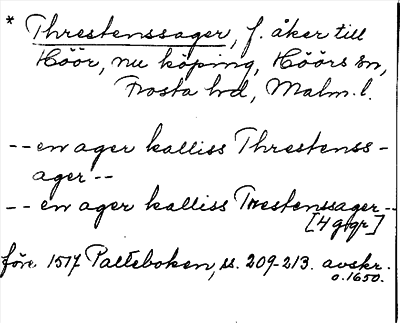 * Threstenssager, f. åker till
Höör, nu köping, Höörs sn,
Frosta hd, Malm. l.
-- en ager kalliss Threstenss-
ager --
-- en ager kalliss Trestenssager --
[4 ggr]
före 1517 Palteboken, ss. 209-213. avskr.
o. 1650.